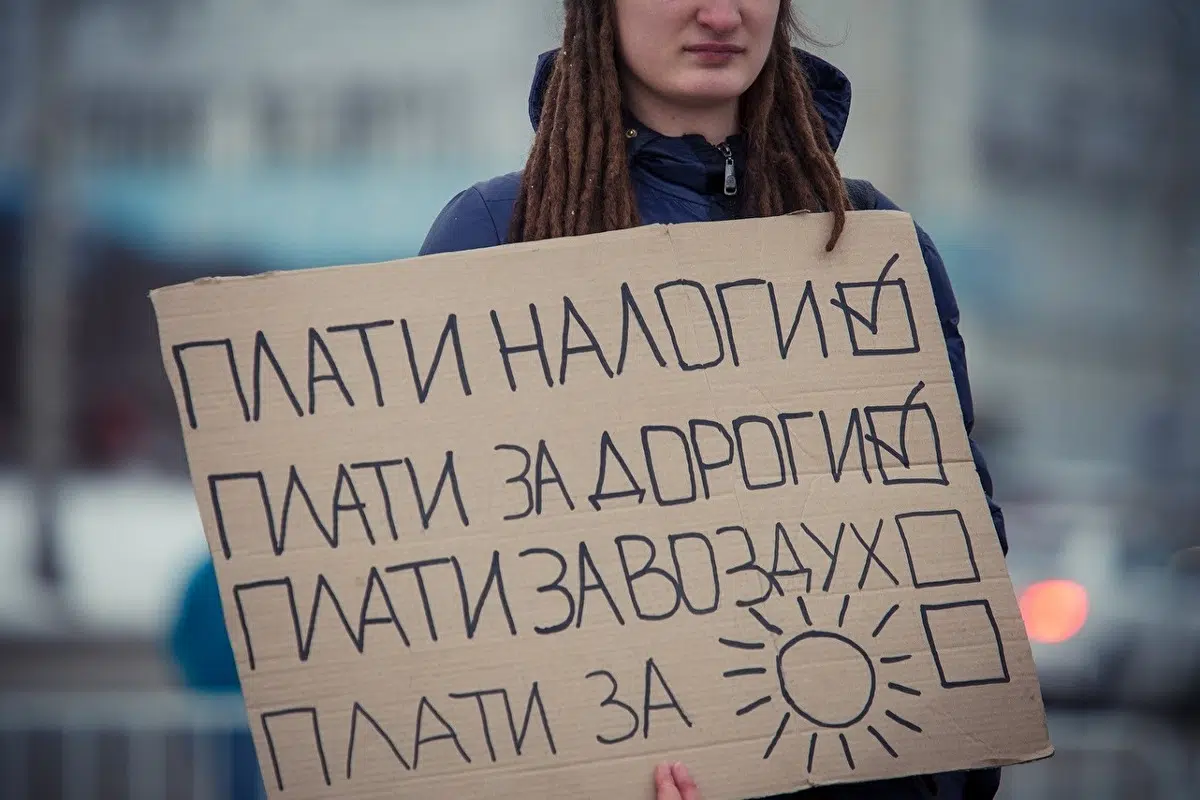 ПЛАТИ НАЛОГИ
ПЛАТИ ЗА ДОРОГИ
ПЛАТИ ЗА ВОЗДУХ
ПЛАТИ ЗА